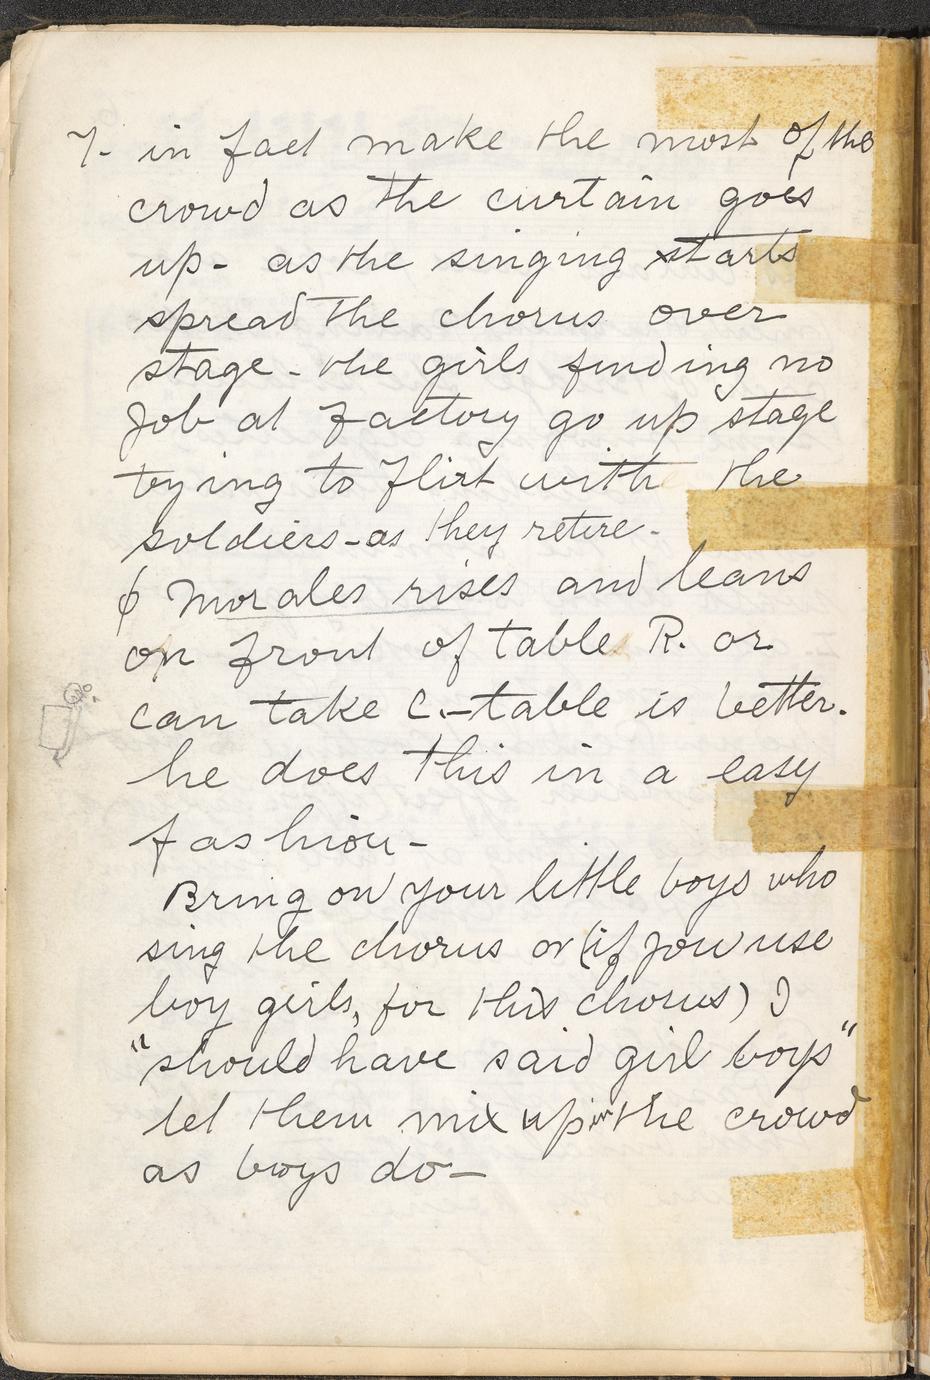 7- in fact make the most of the
crowd as the curtain goes
up- as the singing starts
spread the chorus over
stage- the girls finding no
Job at factory go up stage
trying to flirt with the
soldiers-as they retire-
ϕ Morales rises and leans
on front of table R. or
can take C.-table is better.
he does this in a easy
fashion-
Bring on your little boys who
sing the chorus or (if you use
boy girls, for this chorus) I
"should have said girl boys"
let them mix up in the crowd
as boys do-